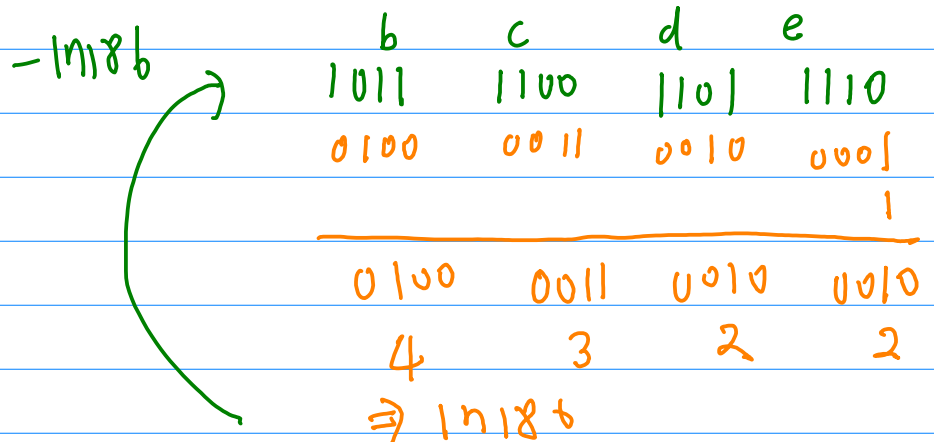 b c d e
-17186 1011 1100 1101 1110
0100 0011 0010 0001
1
0100 0011 0010 0010
4 3 2 2
⇒ 17186